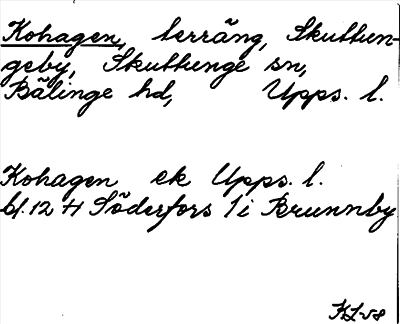 Kohagen, terräng, Skuttun-
geby, Skuttunge sn,
Bälinge hd, Upps. l.
Kohagen ek Upps. l.
bl. 12 H Söderfors 1 i Brunnby
KL-58